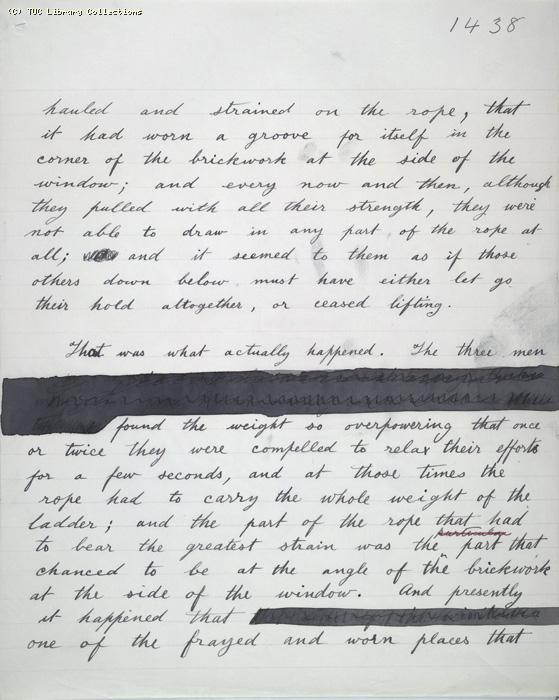 (C) TUC Library Collections
1438
hauled and strained on the rope, that
it had worn a groove for itself in the
corner of the brickwork at the side of the
window; and every now and then, although
they pulled with all their strength, they were
not able to draw in any part of the rope at
all; and it seemed to them as if those
others down below must have either let go
their hold altogether, or ceased lifting.
That was what actually happened. The three men
found the weight so overpowering that once
or twice they were compelled to relax their efforts
for a few seconds, and at those times the
rope had to carry the whole weight of the
ladder; and the part of the rope that had
particular
to bear the greatest strain was the part that
chanced to be at the angle of the brickwork
at the side of the window. And presently
it happened that
one of the frayed and worn places that